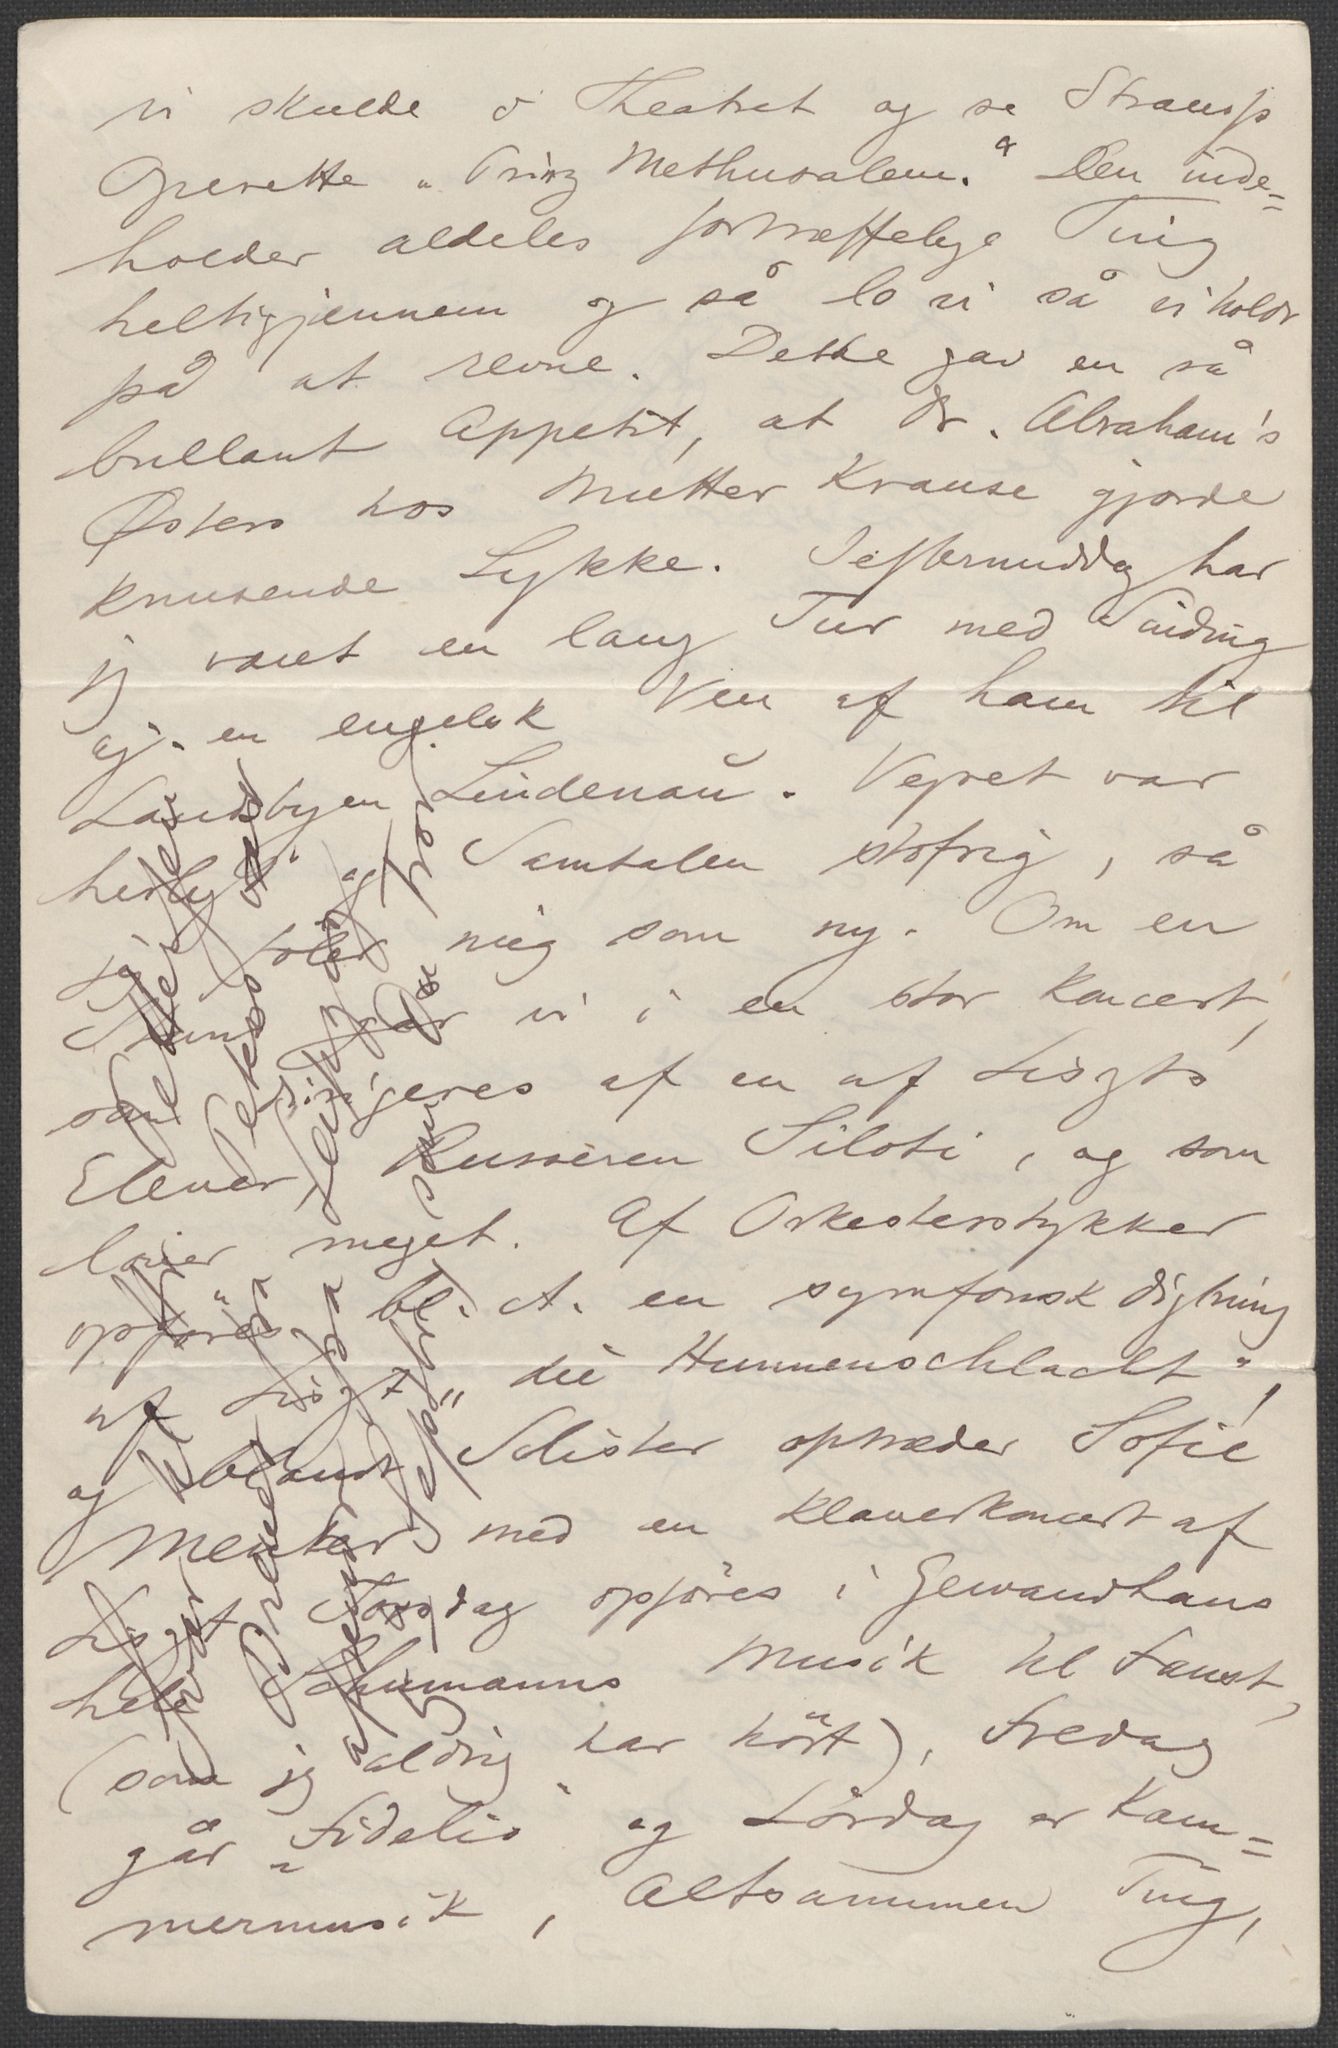 vi skulde i Theatret og se Strauss's
Operette „Prinz Methusalem." Den inde=
holder aldeles fortræffelige Ting
heltigjennem og så lo vi så vi holdt
på at revne. Dette gav en så
brillant Appetit, at Dr. Abraham's
Østers hos Mutter Krause gjorde
knusende Lykke. Ieftermiddag har
jeg været en lang Tur med Sinding
og en engelsk Ven af ham til
Landsbyen Lindenau. Vejret var
herligt og Samtalen stofrig, så
jeg føler mig som ny. Om en
Stund går vi i en stor Koncert,
som dirigeres af en af Liszts
Elever, Russeren Siloti, og som
lover meget. Af Orkesterstykker
opføres bl. A. en symfonisk Digtning
af Liszt „die Hunnenschlacht",
og blandt Solister optræder Sofie
Menter med en Klaverkoncert af
Liszt. Torsdag opføres i Gewandhaus
hele Schumanns Musik til Faust,
(som jeg aldrig har hørt), Fredag
går „Fidelio" og Lørdag er Kam=
mermusik, Altsammen Ting,